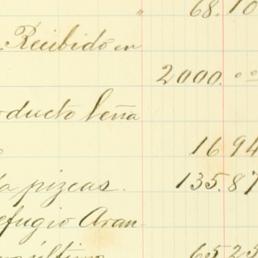 " 68.10
Recibido en
2000.00
oducto leña
16.94
a pizcas. 135.87
efugio Aran-
65.25